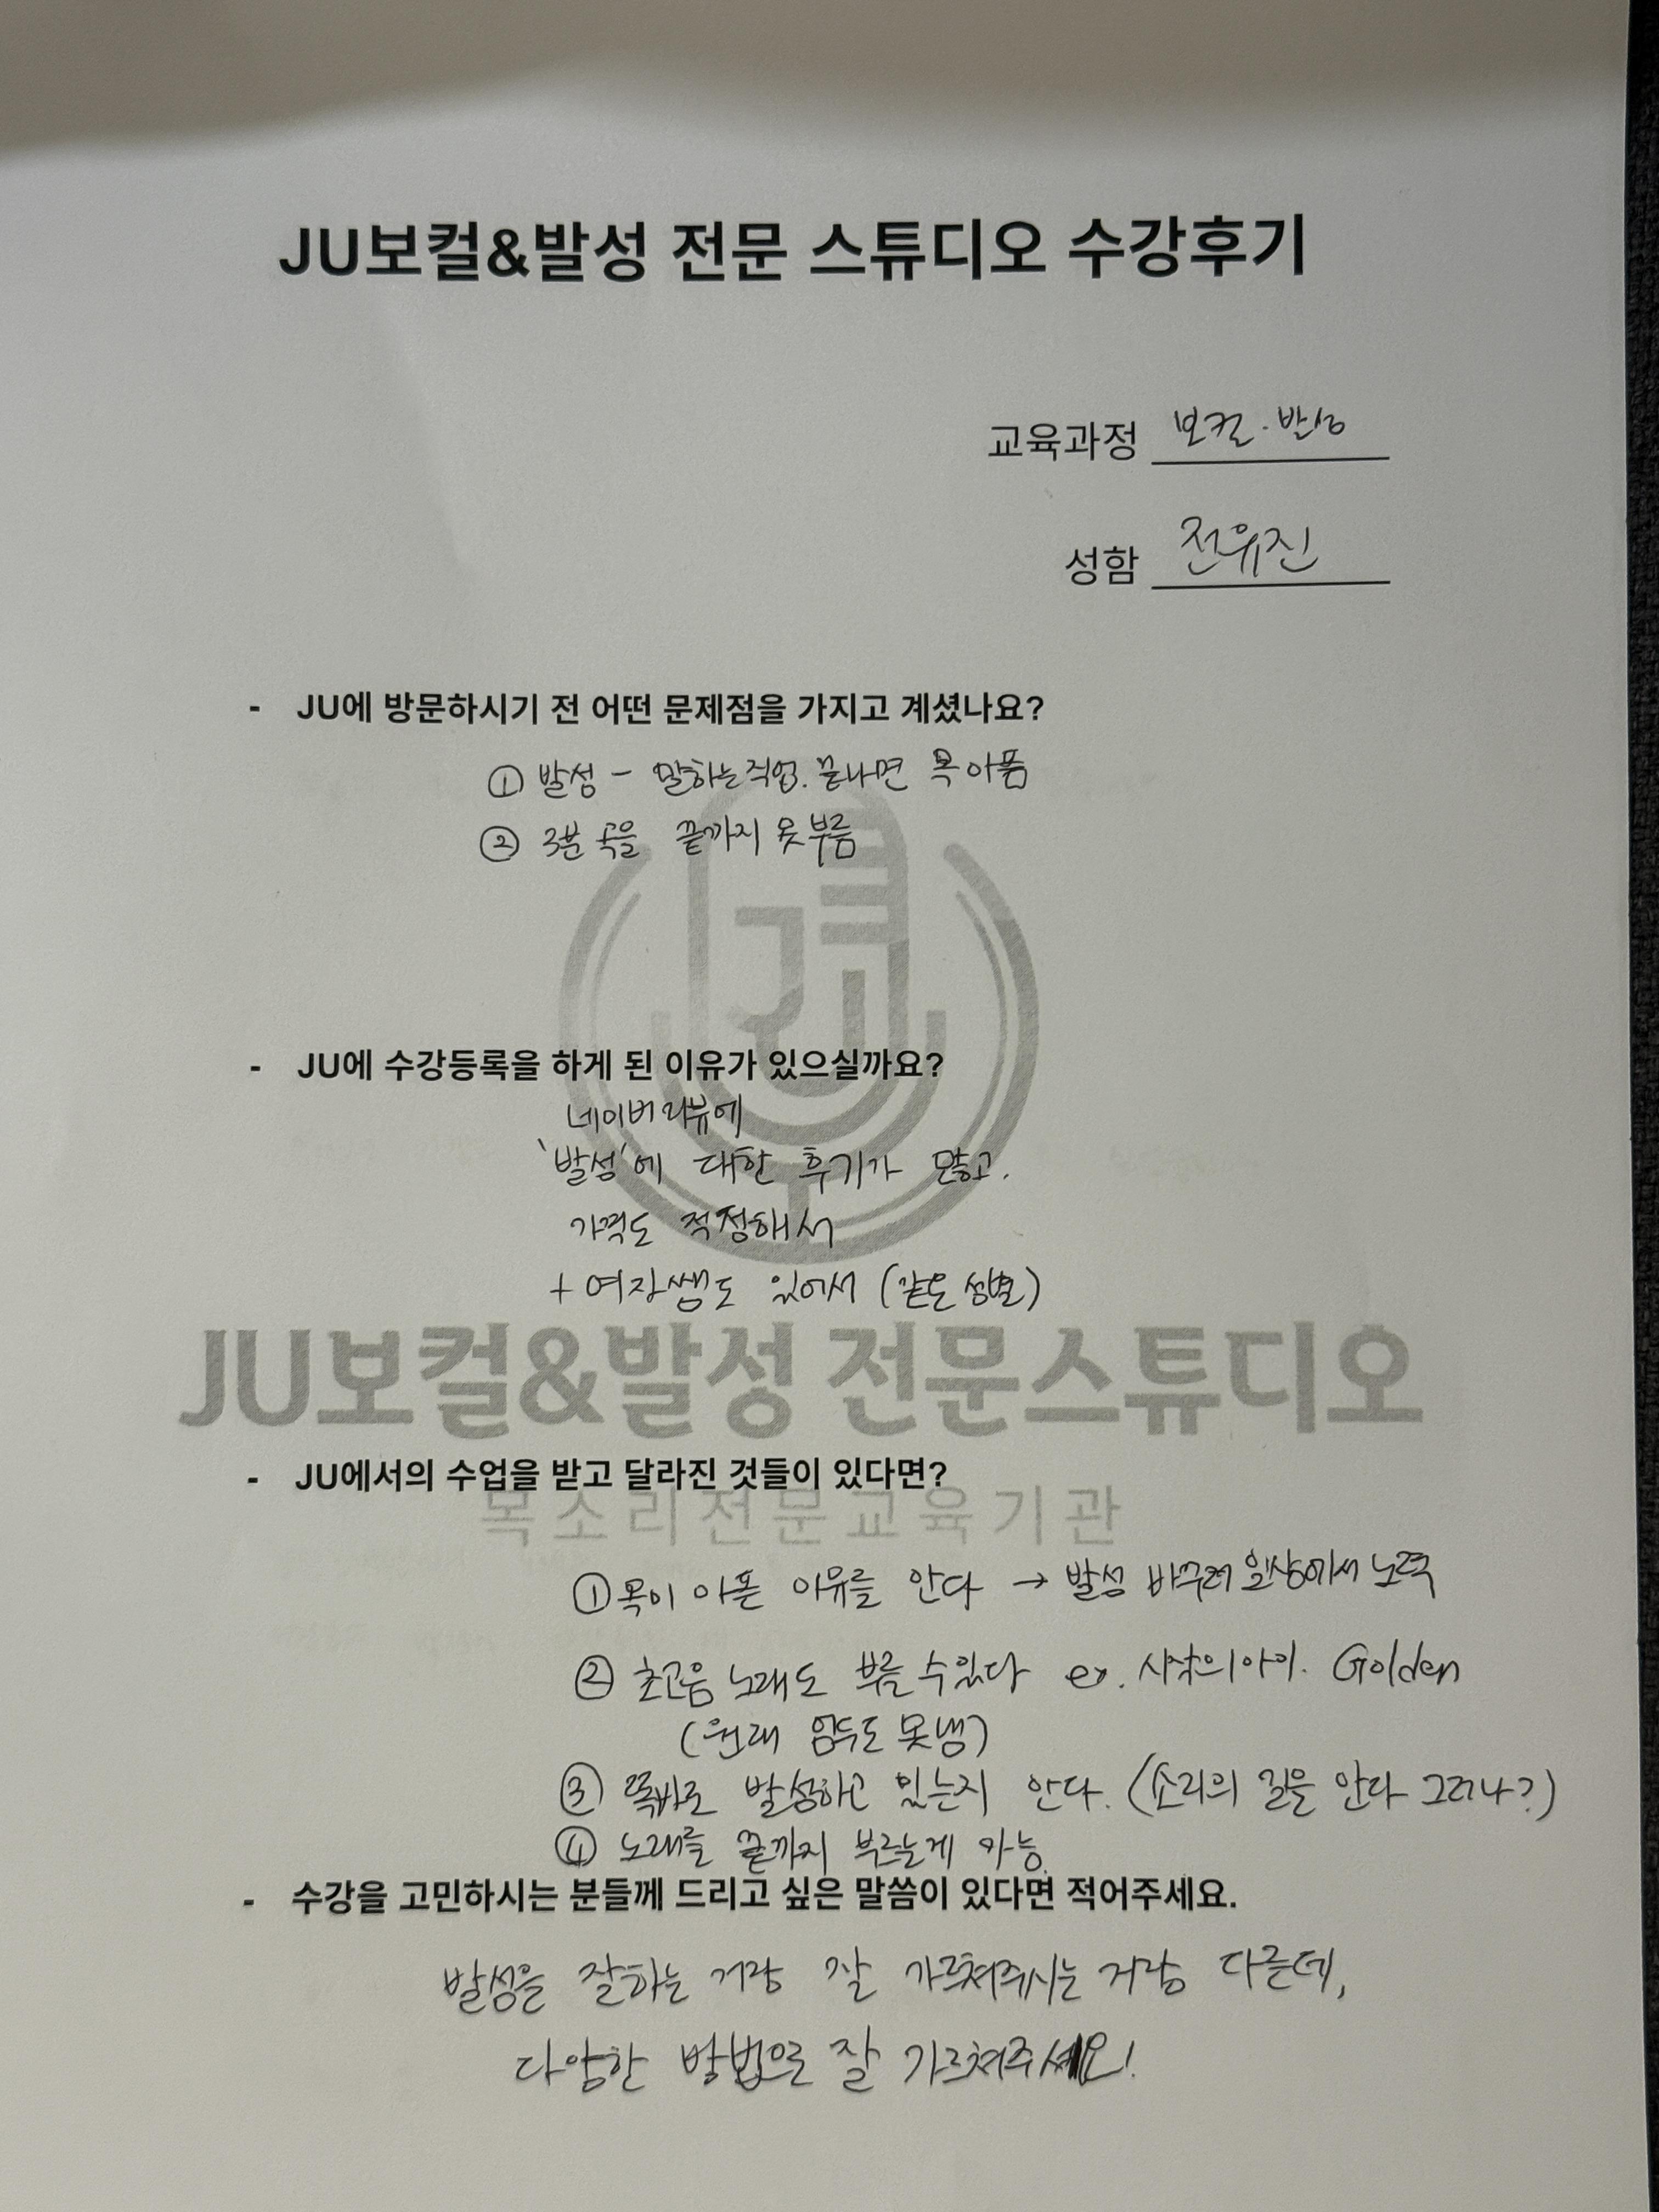 JU보컬&발성 전문 스튜디오 수강후기
교육과정 보컬·발성
성함 전유진
- JU에 방문하시기 전 어떤 문제점을 가지고 계셨나요?
① 발성 - 말하는직업. 끝나면 목 아픔
② 3분 곡을 끝까지 못 부름
- JU에 수강등록을 하게 된 이유가 있으실까요?
네이버 리뷰에
'발성'에 대한 후기가 많고.
가격도 적정해서
+ 여자쌤도 있어서 (같은 성별)
JU보컬&발성 전문스튜디오
- JU에서의 수업을 받고 달라진 것들이 있다면?
목소리전문교육기관
① 목이 아픈 이유를 안다 → 발성 바꾸려 일상에서 노력
② 초고음 노래도 부를 수 있다 ex. 시작의 아이. Golden
(원래 엄두도 못냄)
③ 똑바로 발성하고 있는지 안다. (소리의 길을 안다 그러나?)
④ 노래를 끝까지 부르는게 가능
- 수강을 고민하시는 분들께 드리고 싶은 말씀이 있다면 적어주세요.
발성을 잘하는 거랑 잘 가르쳐주시는 거랑 다른데,
다양한 방법으로 잘 가르쳐주세요!